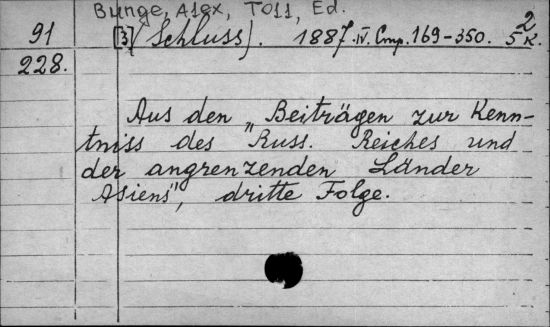 Bunge, Alex, Toll, Ed.
2
91 [3] (Schluss). 1887. IV. Стр. 169-350. 5 к.
228.
Aus den „Beiträgen zur Kenn-
tniss des Russ. Reiches und
der angrenzenden Länder
Asiens", dritte Folge.